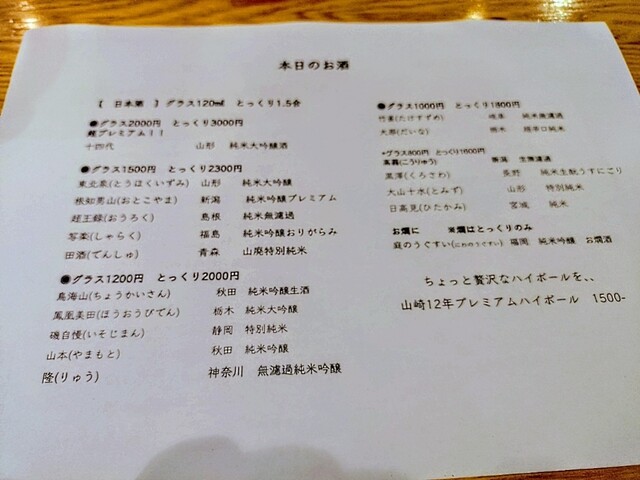 本日のお酒
【 日本酒 】グラス120ml とっくり1.5合
●グラス2000円 とっくり3000円
超プレミアム！！
十四代 山形 純米大吟醸酒
●グラス1500円 とっくり2300円
東北泉(とうほくいずみ) 山形 純米大吟醸
根知男山(おとこやま) 新潟 純米吟醸プレミアム
王録(おうろく) 島根 純米無濾過
写楽(しゃらく) 福島 純米吟醸おりがらみ
田酒(でんしゅ) 青森 山廃特別純米
●グラス1200円 とっくり2000円
鳥海山(ちょうかいさん) 秋田 純米吟醸生酒
鳳凰美田(ほうおうびでん) 栃木 純米大吟醸
磯自慢(いそじまん) 静岡 特別純米
山本(やまもと) 秋田 純米吟醸
隆(りゅう) 神奈川 無濾過純米吟醸
●グラス1000円 とっくり1800円
竹雀(たけすずめ) 岐阜 純米無濾過
大那(だいな) 栃木 超辛口純米
グラス800円 とっくり1600円
(こうりゅう) 新潟 生無濾過
黒澤(くろさわ) 長野 純米生酛うすにごり
大山十水(とみず) 山形 特別純米
日高見(ひたかみ) 宮城 純米
お燗に ※燗はとっくりのみ
庭のうぐいす(にわのうぐいす) 福岡 純米吟醸 お燗酒
ちょっと贅沢なハイボールを、、
山崎12年プレミアムハイボール 1500-